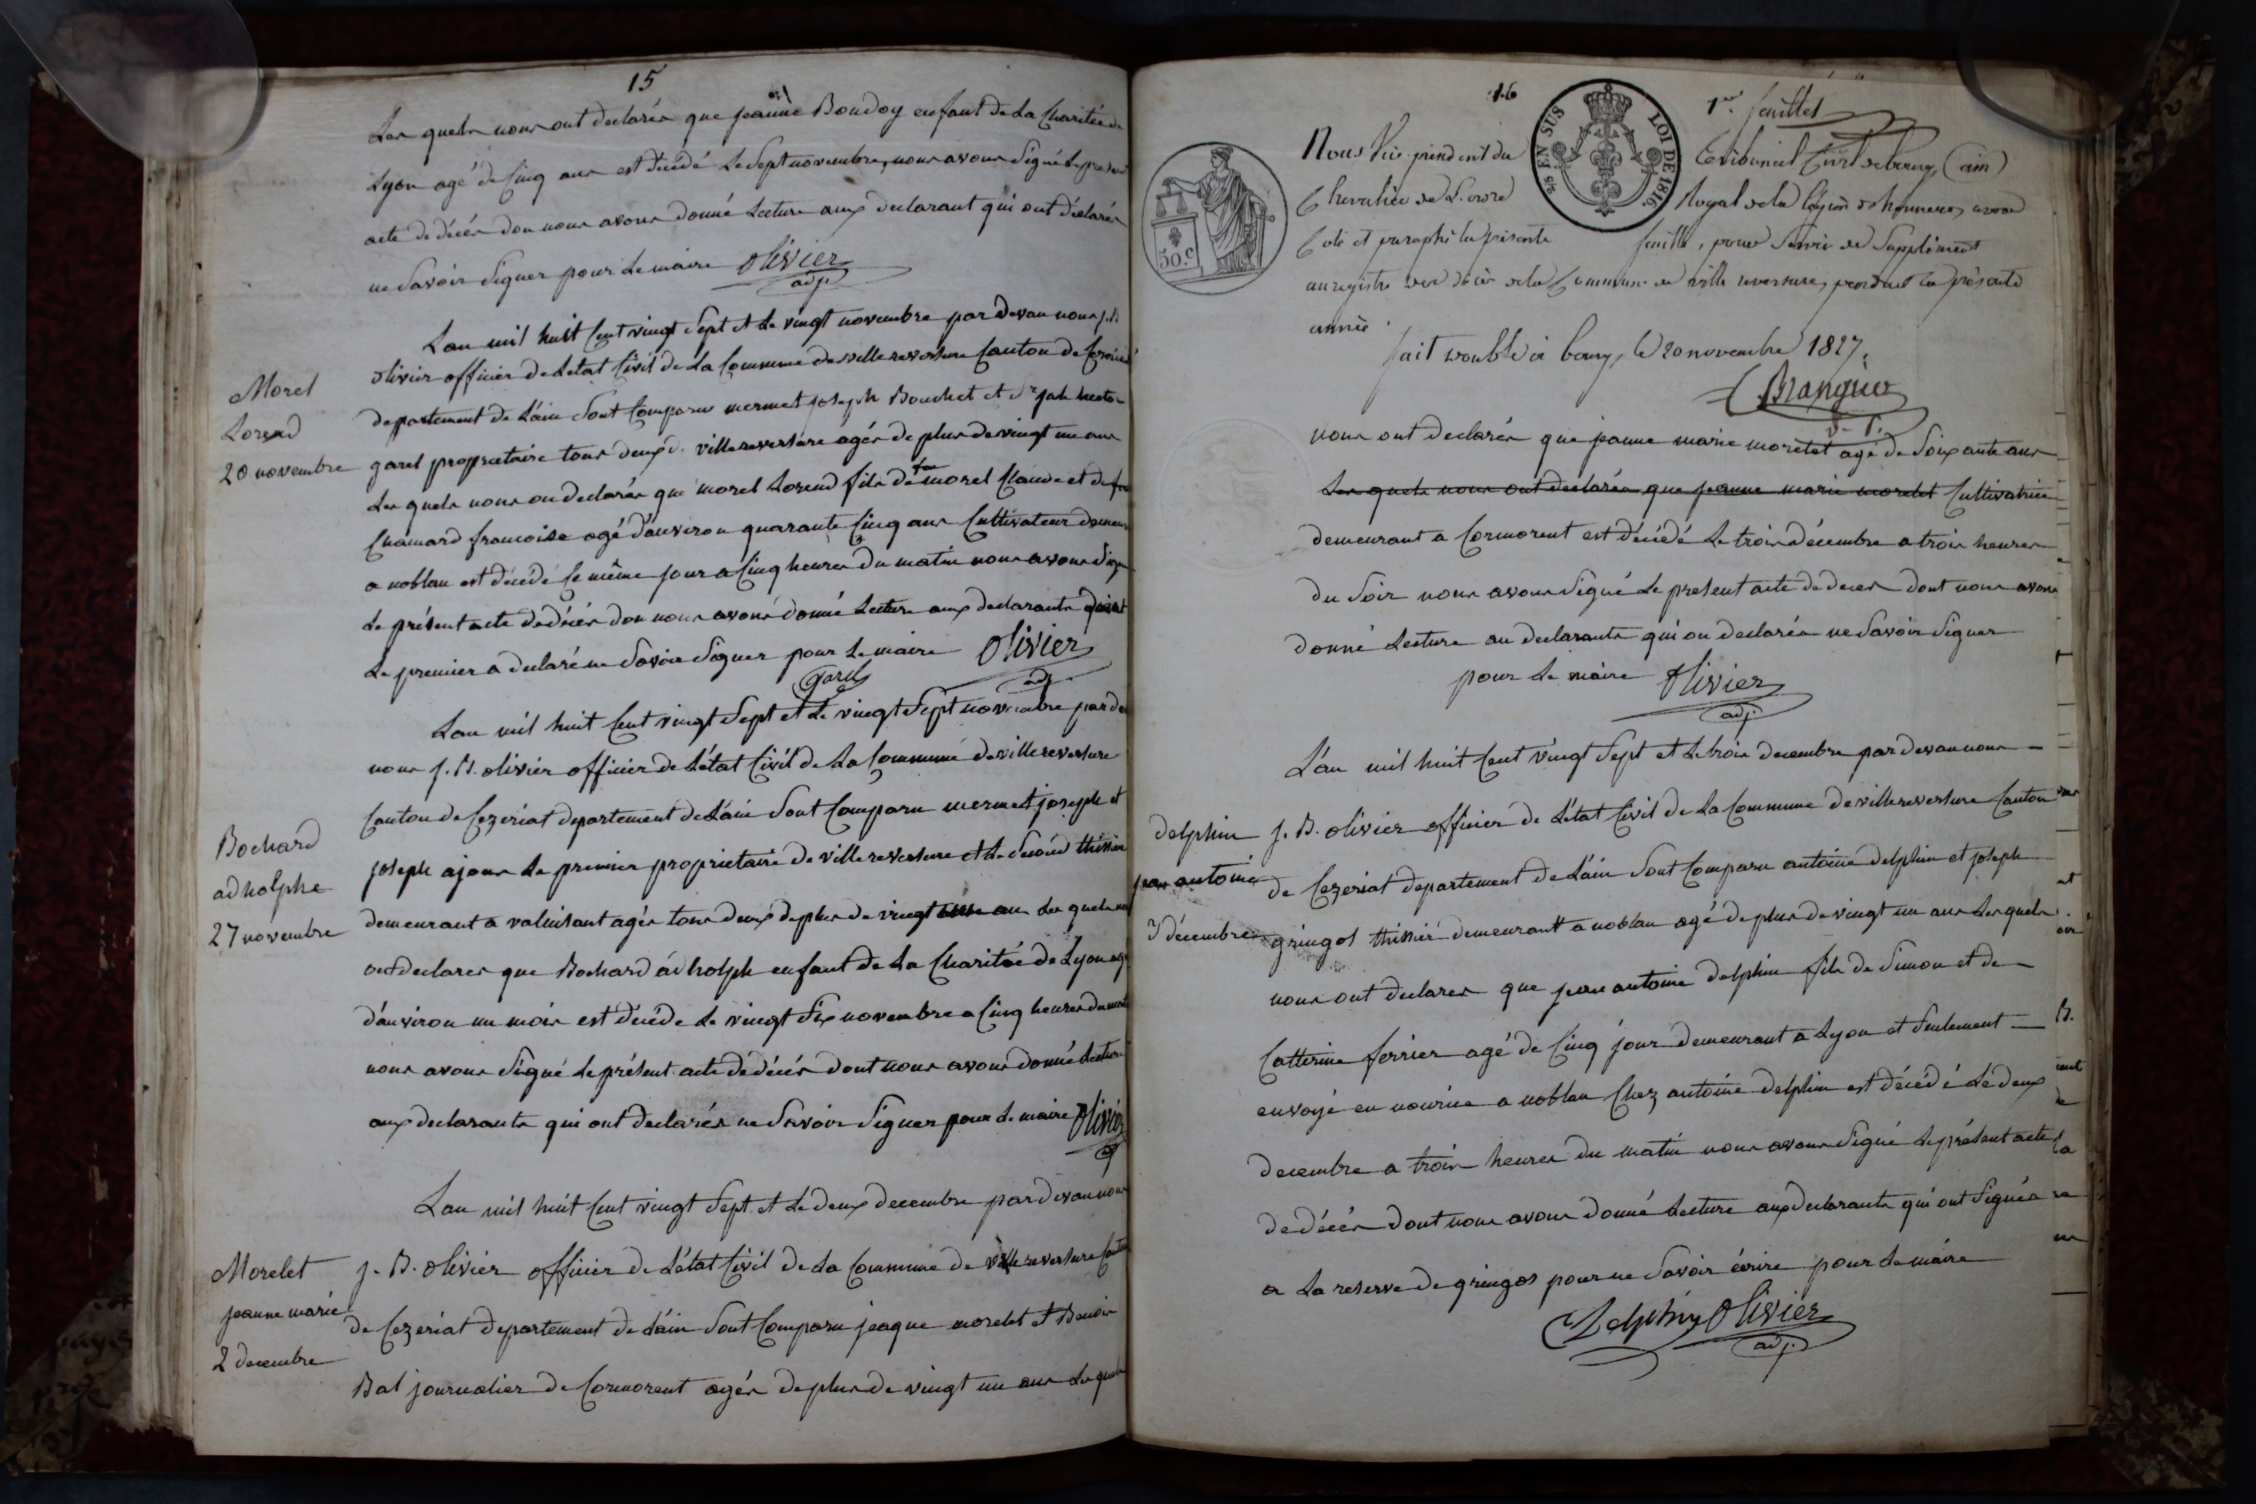 15
Les quels nous ont declarés que jeanne Boudoy enfant de La Charitée de
Lyon agé de Cinq ans est décédé Le Sept novembre, nous avons Signé Le present
acte de décés don nous avons donné Lecture aux declarant qui ont déclarés
ne Savoir Signer pour Le maire Olivier
adj.
Lan mil huit Cent vingt Sept et Le vingt novembre par devan nous j. B.
olivier officier de Letat Civil de La Commune de villereversure Canton de Cezeriat
Morel
Lorend
20 novembre
departement de Lain Sont Comparus mermet joseph Bouchet et
garel proprietaire tous deux d. villereversure agés de plus de vingt un ans
Les quels nous on declarés que morel Lorend fils de feu morel Claude et de feu
Chamard francoise agé d'anviron quarante Cinq ans Cultivateur
a noblan est décédé Ce même jour a Cinq heures du matin nous avons Signé
Le présent acte dedécés don nous avons donné Lecture aux declarants
Le premier a declaré ne Savoir Signer pour Le maire Olivier
Garel
adj.
Lan mil huit Cent vingt Sept et Le vingt Sept novembre par de
nous j. B. olivier officier de Létat Civil de La Commune de villereversure
Canton de Cezeriat departement de Lain Sont Comparu mermet joseph et
Bochard
adholphe
27 novembre
joseph ajoux Le premier proprietaire de villereversure et Le Second thissier
demeurant a valuisant agés tous deux de plus de vingt un ans Les quels
ont declares que Bochard adholph enfant de La Charitée de Lyon agé
d'anviron un mois est décédé Le vingt Six novembre a Cinq heures du matin
nous avons Signé Le présent acte dedécés dont nous avons donné Lecture
aux declarants qui ont declarés ne Savoir Signer pour Le maire Olivier
Lan mil huit Cent vingt Sept et Le deux decembre par devan nous
Morelet
jeanne marie
2 decembre
j. B. olivier officier de Létat Civil de La Commune de villereversure Canton
de Cezeriat departement de Lain Sont Comparu jeaque morelet et Benoir
Bal journalier de Cormorent agés de plus de vingt un ans Les quels
16
1er feuillet
EN SUS LOI DE 1816
50.C
Nous Vice president du Tribunal Civil de bourg (ain)
Chevalier de L'ordre Royal de la Légion d'honneur, avons
Coté et paraphé la présente feuille, pour Servir de Supplément
au registre des décès de la Commune de villereversure, pendant la présente
année.
fait double à bourg, le 20 novembre 1827.
v. P.
nous ont declarés que jeanne marie morelet agé de Soixante ans
Les quels nous ont declarés que jeanne marie morelet Cultivatrice
demeurant a Cormorent est décédé Le trois décembre a trois heures
du Soir nous avons Signé Le present acte de deces dont nous avons
donné Lecture au declarants qui on declarés ne Savoir Signer
pour Le maire Olivier
adj.
Lan mil huit Cent vingt Sept et Le trois decembre par devan nous
delphin
jean antoine
3 décembre
j. B. olivier officier de Létat Civil de La Commune de villereversure Canton
de Cezeriat departement de Lain Sont Comparu antoine delphin et joseph
gringos thissier demeurant a noblan agé de plus de vingt un ans Lesquels
nous ont declares que jean antoine delphin fils de Simon et de
Catterine ferrier agé de Cinq jour demeurant a Lyon et Seulement
envoyé en nourice a noblan Chez antoine delphin est décédé Le deux
decembre a trois heures du matin nous avons Signé Le présent acte
de décés dont nous avons donné Lecture aux declarants qui ont Signés
a La reserve de gringos pour ne Savoir écrire pour Le maire
Delphin Olivier
adj.